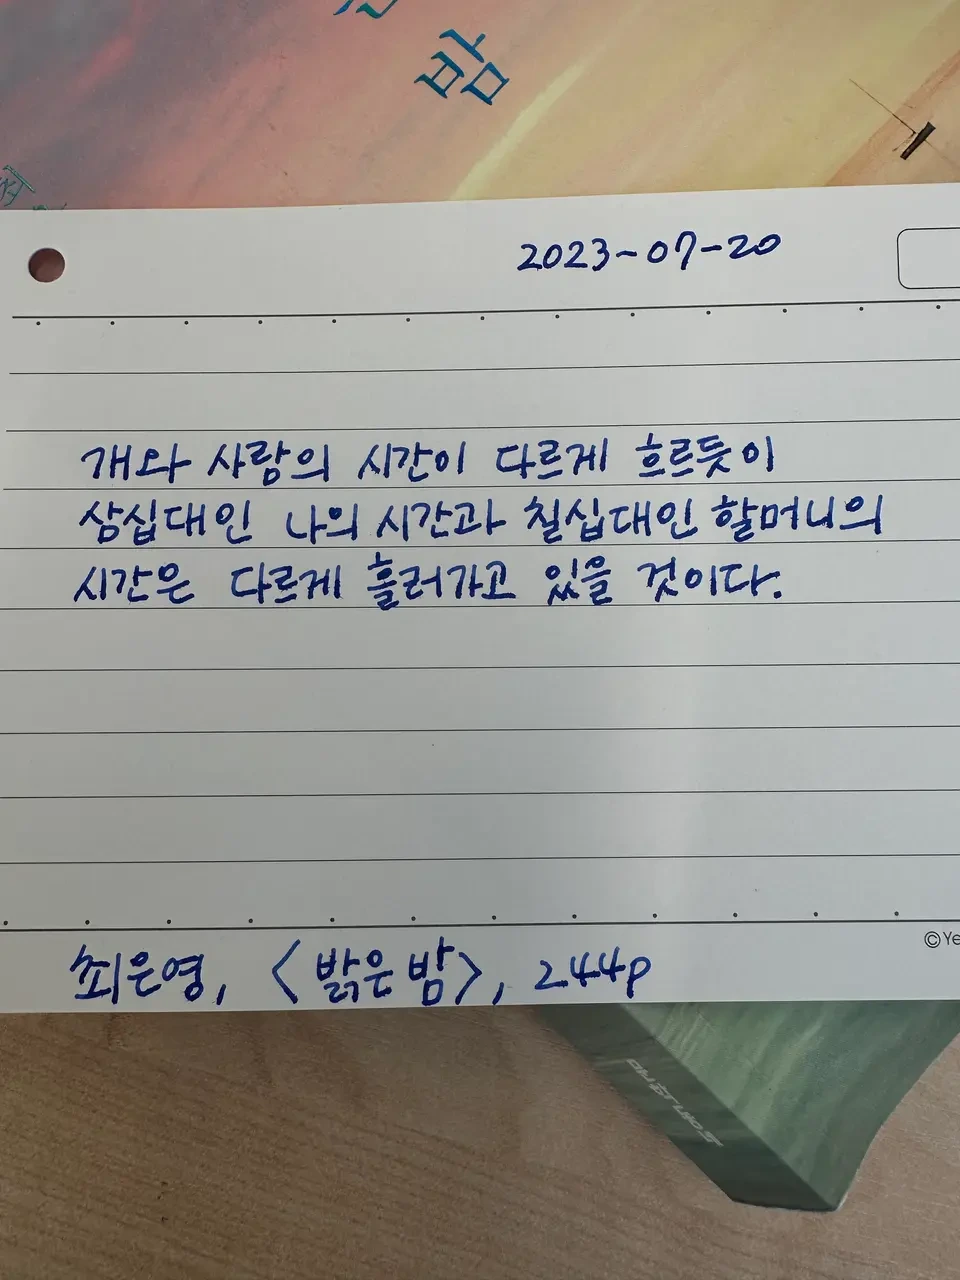 밤
2023-07-20
개와 사람의 시간이 다르게 흐르듯이
삼십대인 나의 시간과 칠십대인 할머니의
시간은 다르게 흘러가고 있을 것이다.
©Ye
최은영, <밝은 밤>, 244p